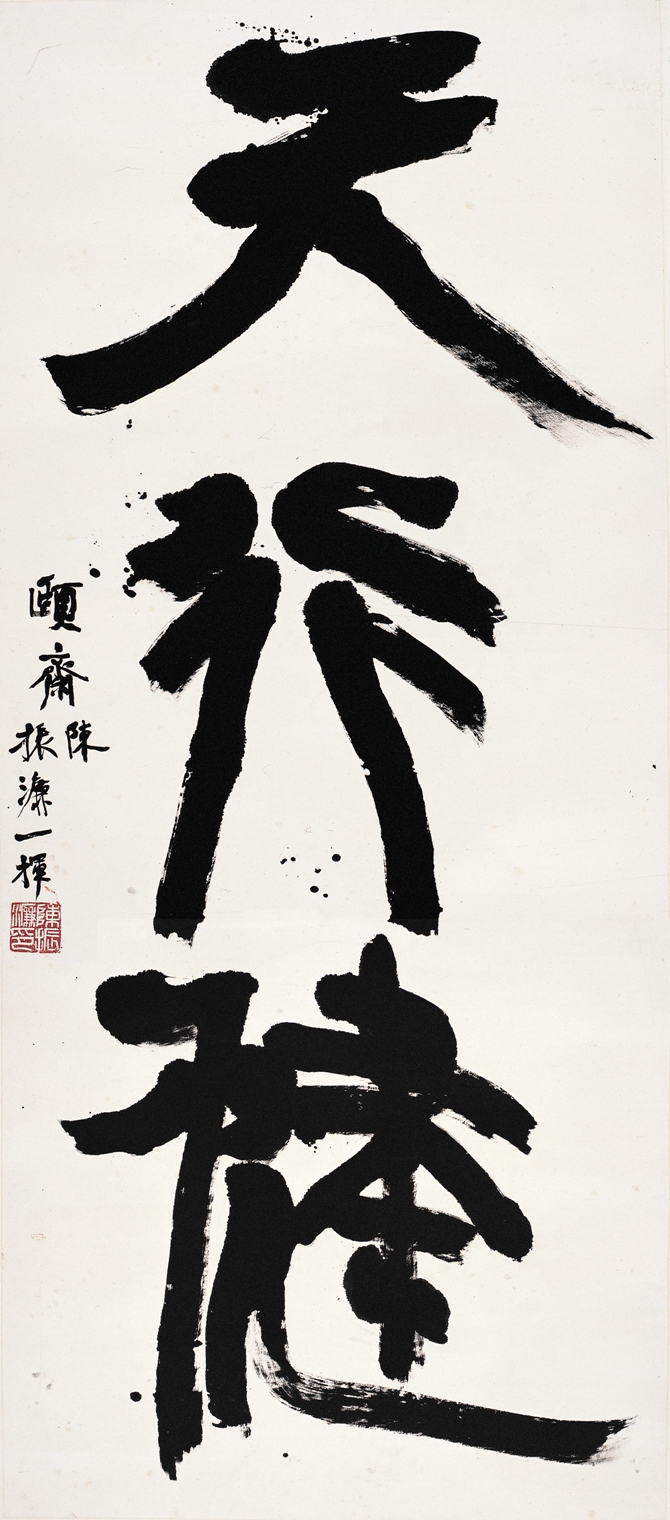 天行健
頤齋
陳振濂一揮
陳振濂印